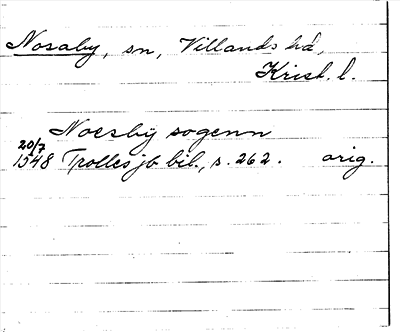 Nosaby, sn, Villands hd,
Krist. l.
Noesby sogenn
20/7
1548 Trolles jb bil., s. 262. orig.